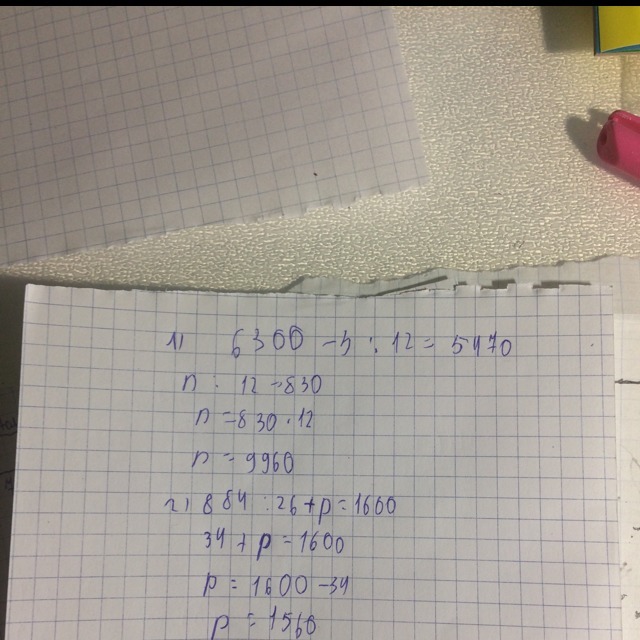 1) 6300 - n : 12 = 5470
n : 12 = 830
n = 830 · 12
n = 9960
2) 884 : 26 + p = 1600
34 + p = 1600
p = 1600 - 34
p = 1560